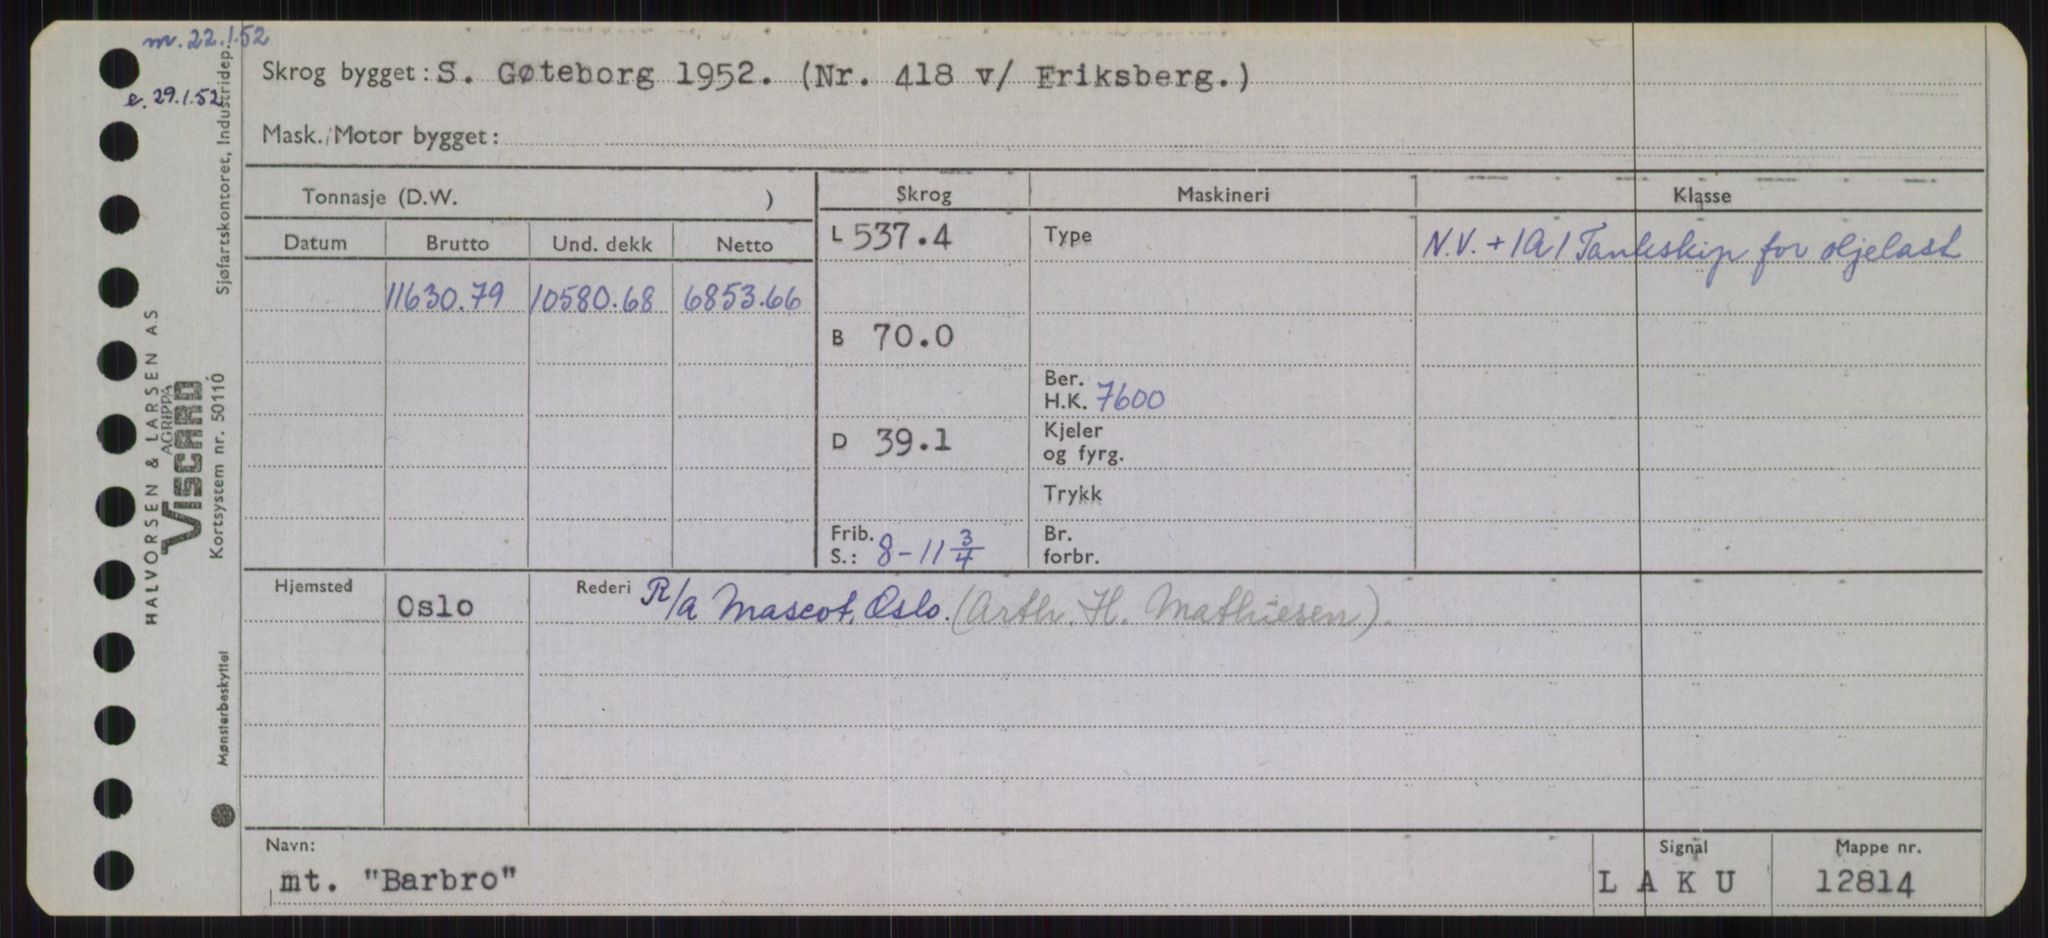 m. 22.1.52
e. 29.1.52
Skrog bygget: S. Gøteborg 1952. (Nr. 418 v/ Eriksberg.)
Mask./Motor bygget:
Tonnasje (D.W. )
Skrog Maskineri Klasse
Datum Brutto Und. dekk Netto
L 537.4 Type N.V. + 1A1 Tankskip for oljelast
11630.79 10580.68 6853.66
B 70.0
Ber. H.K. 7600
D 39.1 Kjeler og fyrg.
Trykk
Frib. S.: 8-11 3/4 Br. forbr.
Hjemsted Oslo Rederi R/a Mascot, Oslo. (Arth. H. Mathiesen).
Navn: mt. "Barbro"
Signal L A K U
Mappe nr. 12814
HALVORSEN & LARSEN AS
AGRIPPA
VISCARD
Kortsystem nr. 50110
Sjøfartskontoret, Industridep.
Mønsterbeskyttet